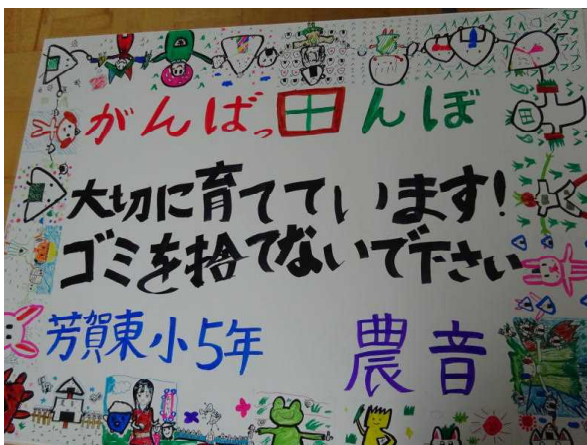 がんばっ田んぼ
大切に育てています!
ゴミを捨てないで下さい
芳賀東小5年
農音